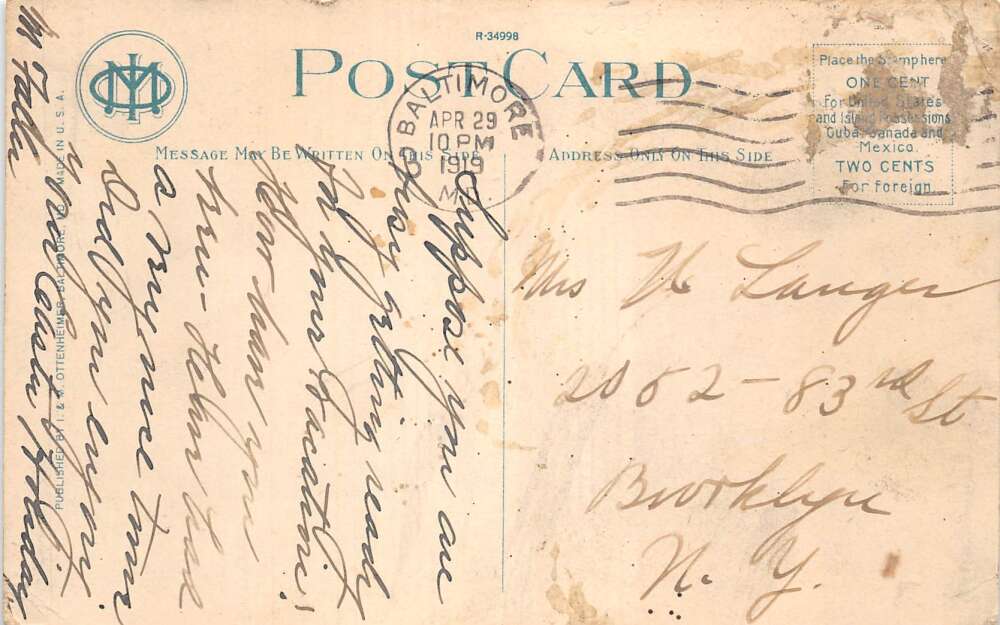 R-34998
POST CARD
BALTIMORE
APR 29
10 PM
1919
MD.
Place the Stamp here
ONE CENT
For United States
and Island Possessions
Cuba, Canada and
Mexico.
TWO CENTS
For Foreign.
MESSAGE MAY BE WRITTEN ON THIS SIDE
ADDRESS ONLY ON THIS SIDE
Suppose you are
busy getting ready
for your vacation.
How have you
been - had
a very nice time.
Did you enjoy
your Easter Holiday
M
Mrs H Langer
2082 - 83rd St
Brooklyn
N. Y.
PUBLISHED BY I. & M. OTTENHEIMER, BALTIMORE, MD. MADE IN U. S. A.